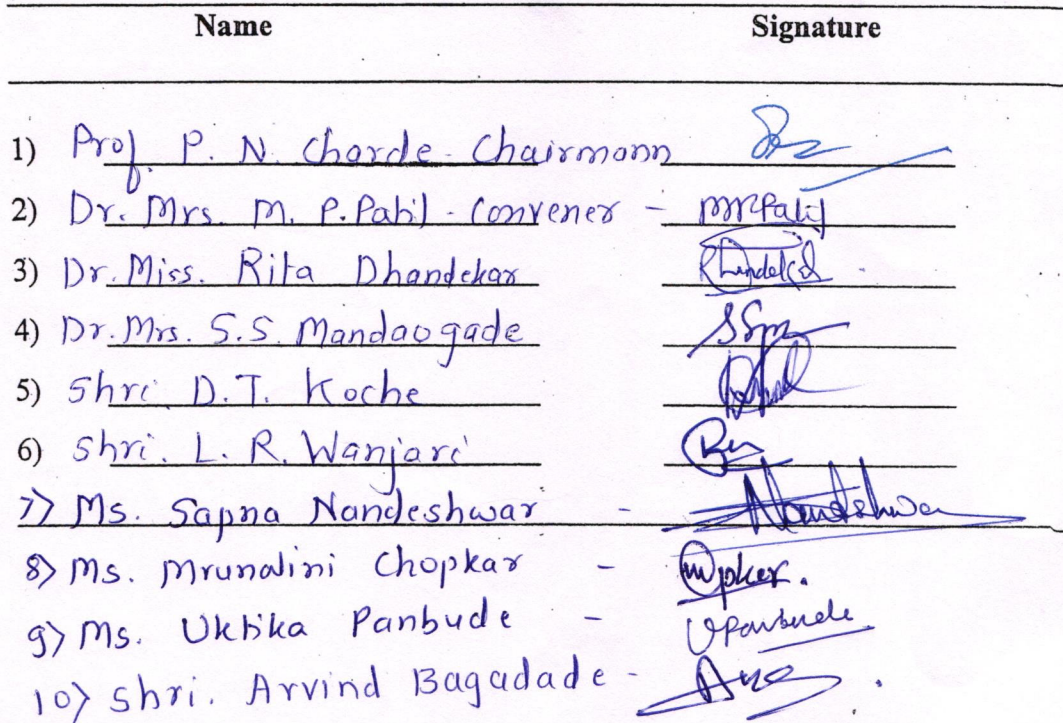 Name Signature
1) Prof. P. N. Charde - Chairmann
2) Dr. Mrs. M. P. Patil - Convener - MPPatil
3) Dr. Miss. Rita Dhandekar
4) Dr. Mrs. S.S. Mandaogade
5) Shri. D.T. Koche
6) Shri. L. R. Wanjari
7) Ms. Sapna Nandeshwar - Nandeshwar
8) Ms. Mrunalini Chopkar -
9) Ms. Uktika Panbude - UPanbude
10) Shri. Arvind Bagadade -